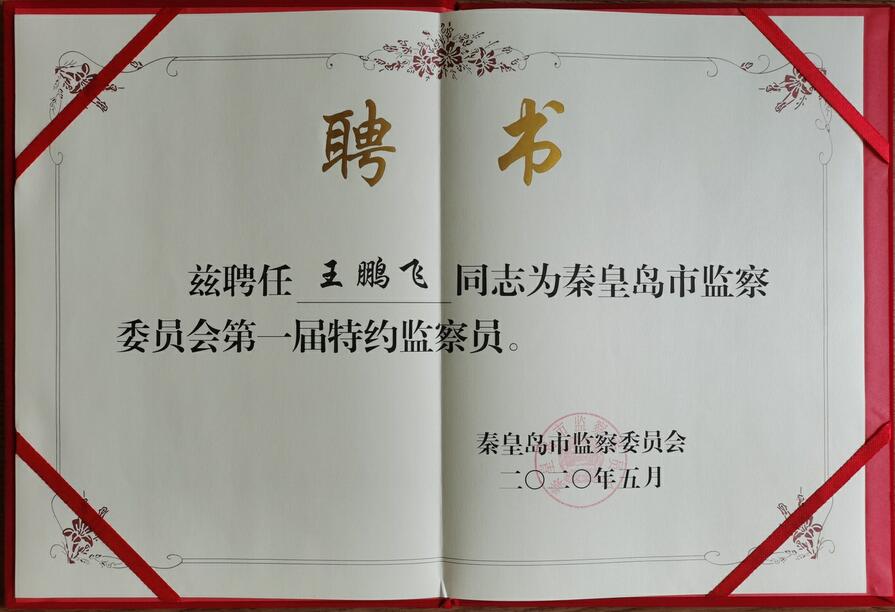 聘书
兹聘任 王鹏飞 同志为秦皇岛市监察
委员会第一届特约监察员。
秦皇岛市监察委员会
二〇二〇年五月